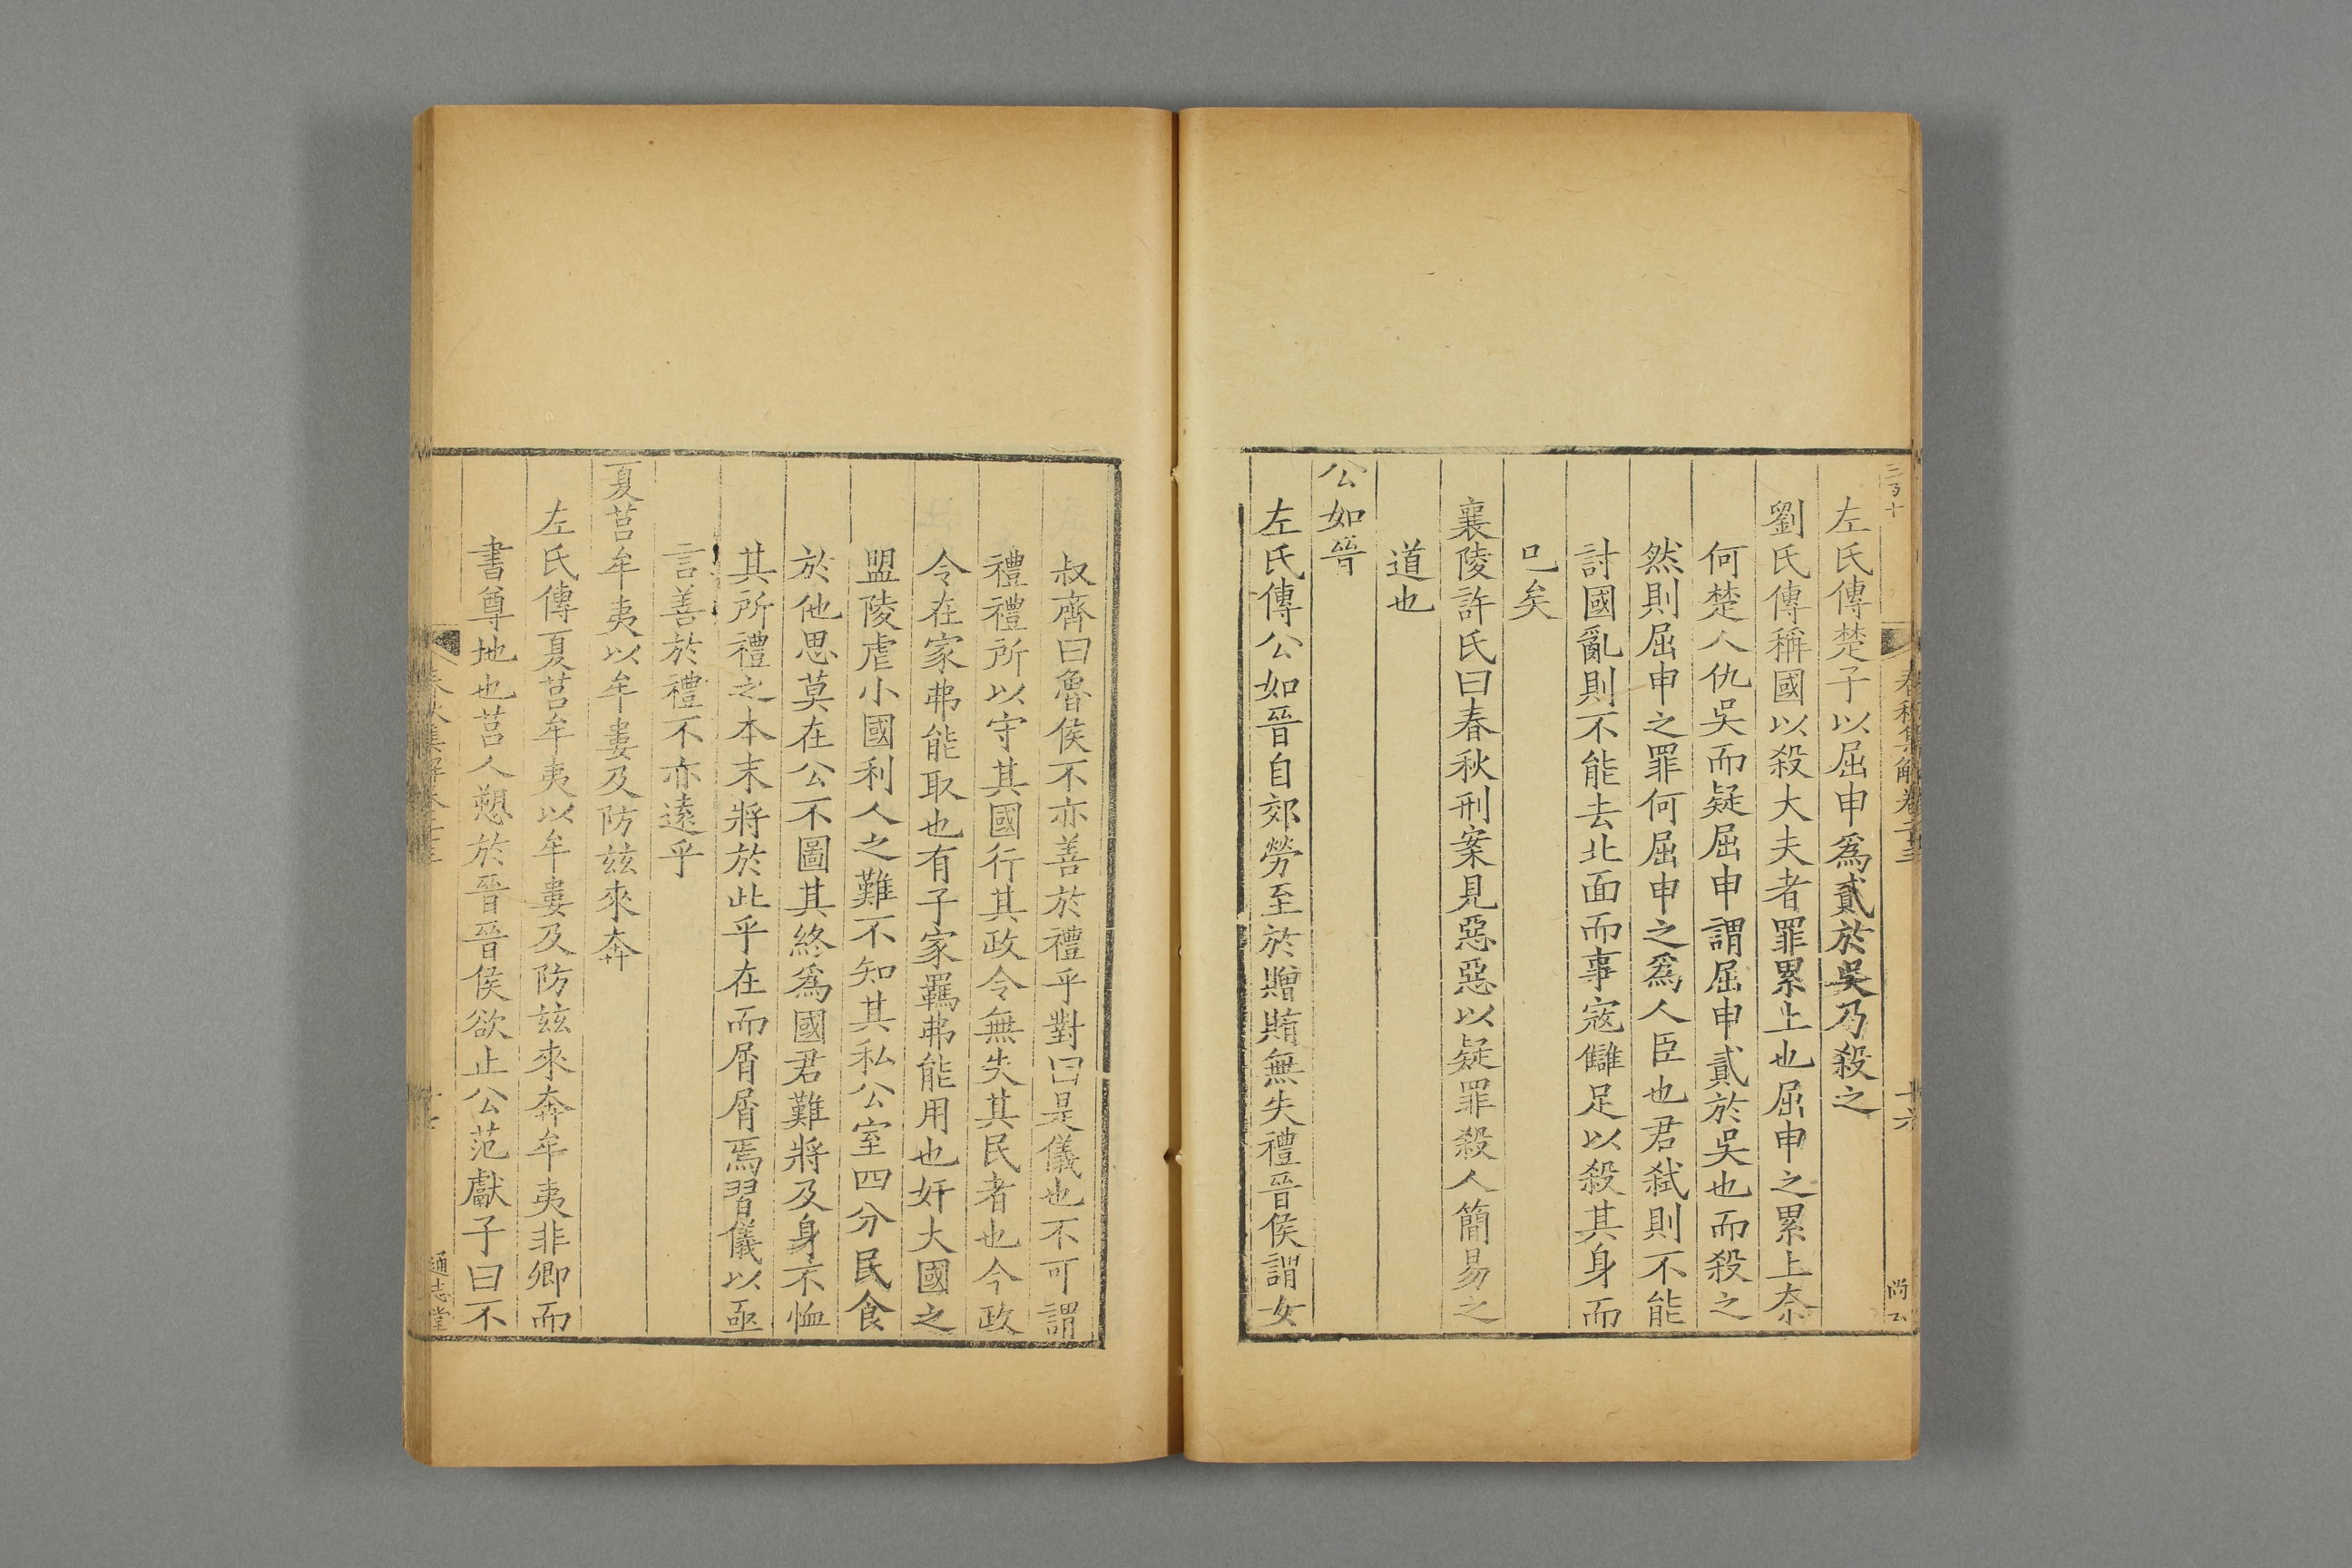 三百十
春秋集解卷二十三
十六
尚工
左氏傳楚子以屈申爲貳於吳乃殺之
劉氏傳稱國以殺大夫者罪累上也屈申之累上奈
何楚人仇吳而疑屈申謂屈申貳於吳也而殺之
然則屈申之罪何屈申之爲人臣也君弑則不能
討國亂則不能去北面而事寇讎足以殺其身而
已矣
襄陵許氏曰春秋刑案見惡惡以疑罪殺人簡易之
道也
公如晉
左氏傳公如晉自郊勞至於贈賄無失禮晉侯謂女
叔齊曰魯侯不亦善於禮乎對曰是儀也不可謂
禮禮所以守其國行其政令無失其民者也今政
令在家弗能取也有子家羈弗能用也奸大國之
盟陵虐小國利人之難不知其私公室四分民食
於他思莫在公不圖其終爲國君難將及身不恤
其所禮之本末將於此乎在而屑屑焉習儀以亟
言善於禮不亦遠乎
夏莒牟夷以牟婁及防茲來奔
左氏傳夏莒牟夷以牟婁及防茲來奔牟夷非卿而
書尊地也莒人愬於晉晉侯欲止公范獻子曰不
春秋集解卷二十三
通志堂